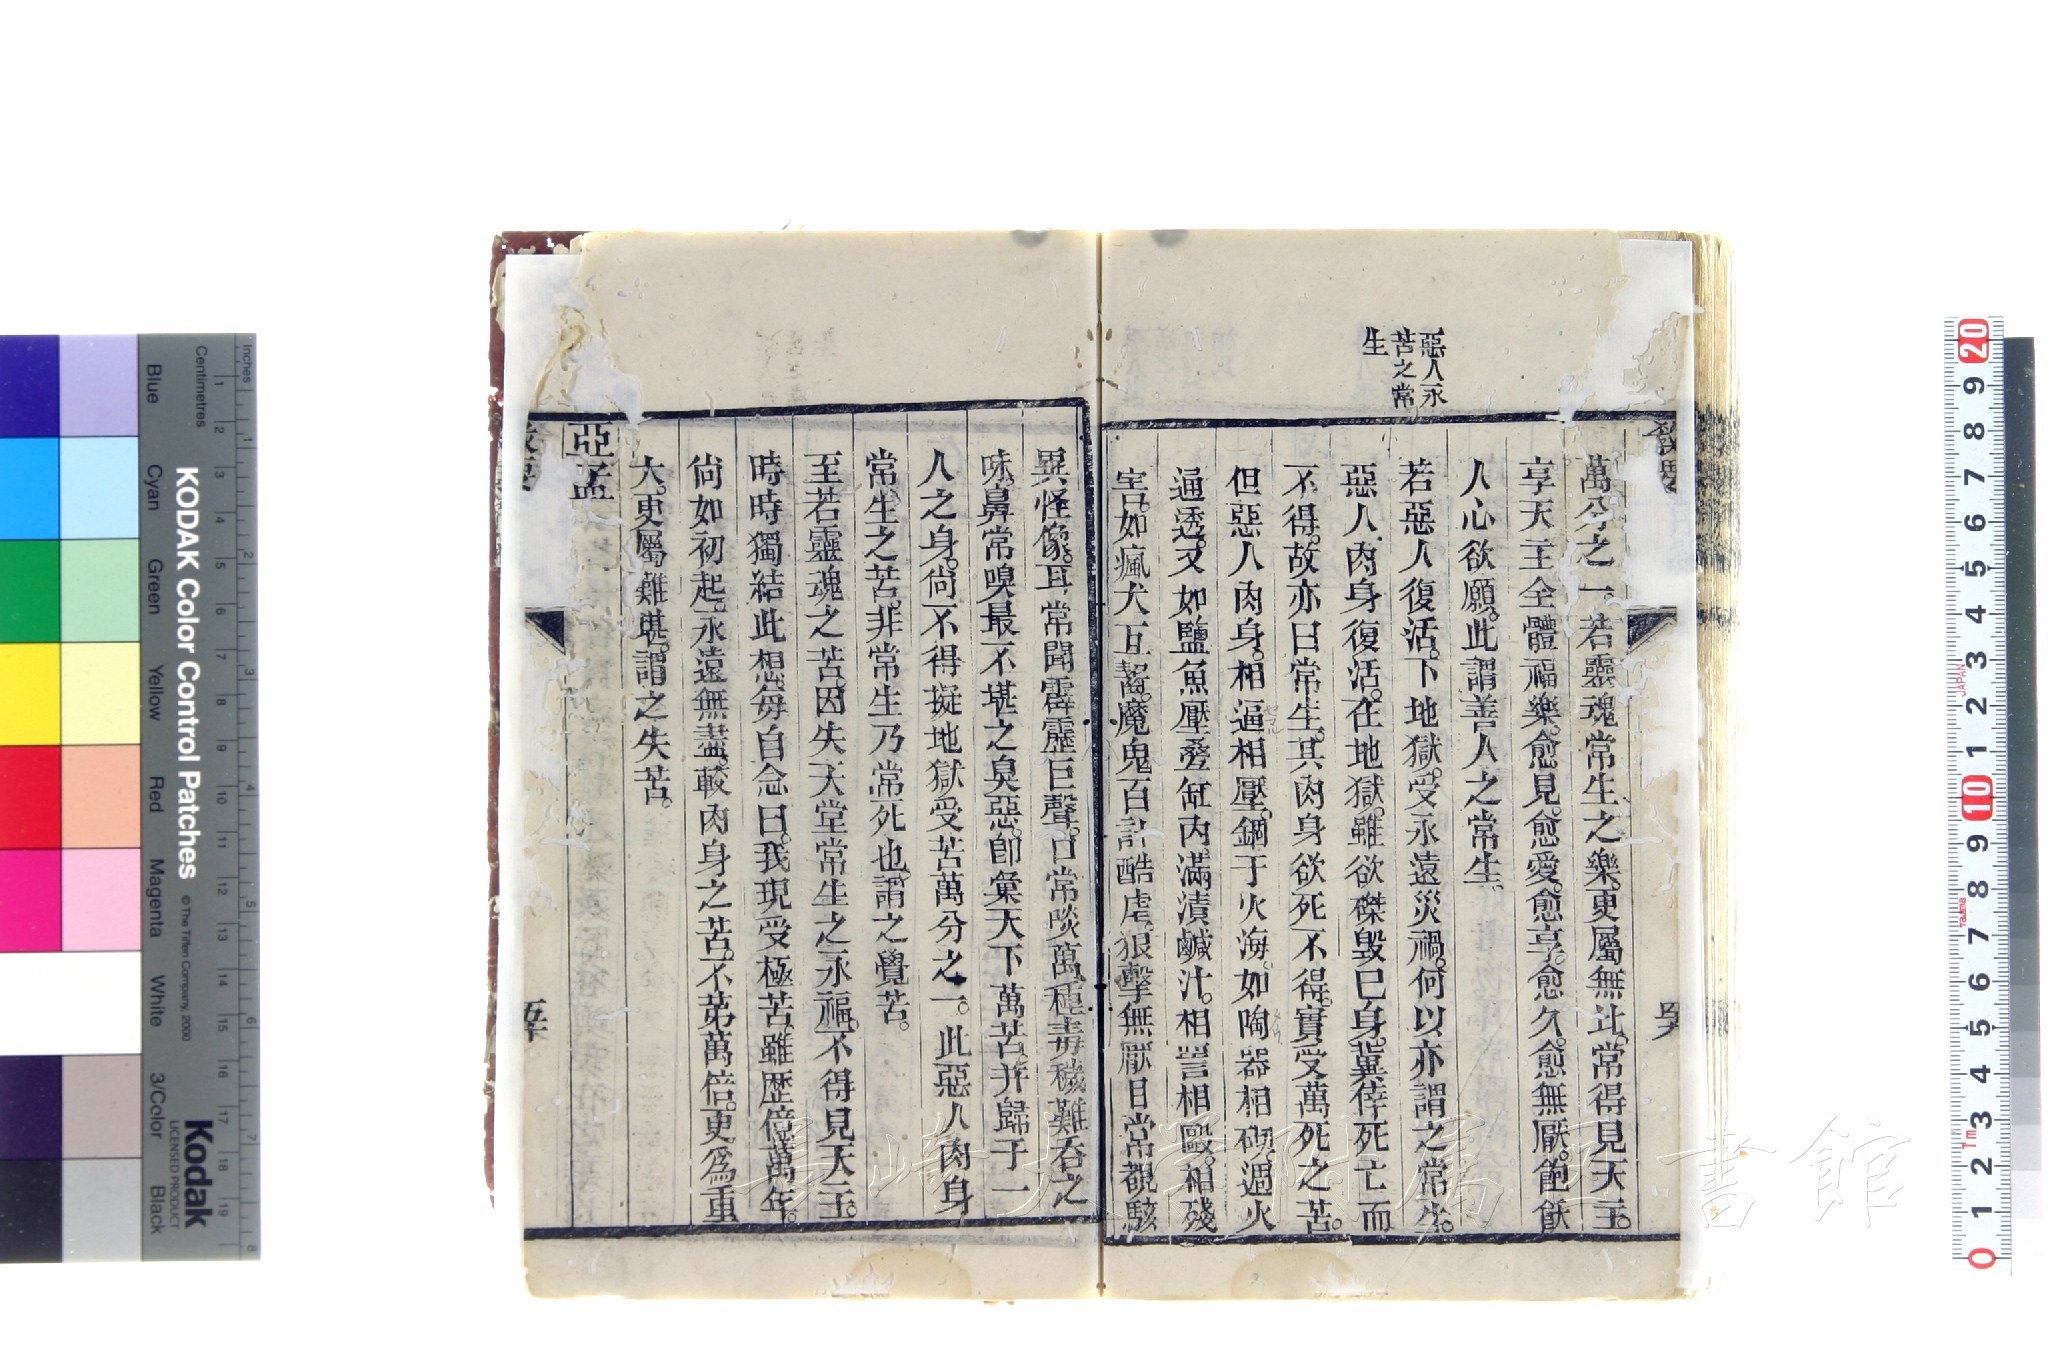 惡人永
苦之常
生
萬分之一若靈魂常生之樂更屬無比。常得見天主。
享天主全體福樂。愈見。愈愛。愈享。愈久。愈無厭。飽飫
人心欲願。此謂善人之常生。
若惡人復活。下地獄。受永遠災禍。何以亦謂之常生。
惡人肉身復活。在地獄。雖欲磔毀巳身。冀倖死亡而
不得。故亦曰常生。其肉身欲死不得。實受萬死之苦。
但惡人肉身。相逼相壓。錮于火海。如陶器相砌。週火
通透。又如鹽魚壓叠缸内。滿漬鹹汁。相詈相毆。相殘
害。如瘋犬互嚙。魔鬼百計酷虐。狠擊無厭。目常覩駭
異怪像。耳常聞霹靂巨聲。口常啖萬種毒穢難吞之
味。鼻常嗅最不堪之臭惡。卽彙天下萬苦。并歸于一
人之身。尙不得擬地獄受苦萬分之一。此惡人肉身
常生之苦。非常生乃常死也。謂之覺苦。
至若靈魂之苦。因失天堂常生之永福。不得見天主。
時時獨結此想。每自念曰。我現受極苦。雖歷億萬年。
尙如初起。永遠無盡。較肉身之苦。不苐萬倍。更爲重
大。更屬難堪。謂之失苦。
亞孟
Blue
Cyan
Green
Yellow
Red
Magenta
White
3/Color
Black
KODAK Color Control Patches
© The Tiffen Company, 2000
Kodak
LICENSED PRODUCT
Centimetres
Inches
長崎大学附属図書館